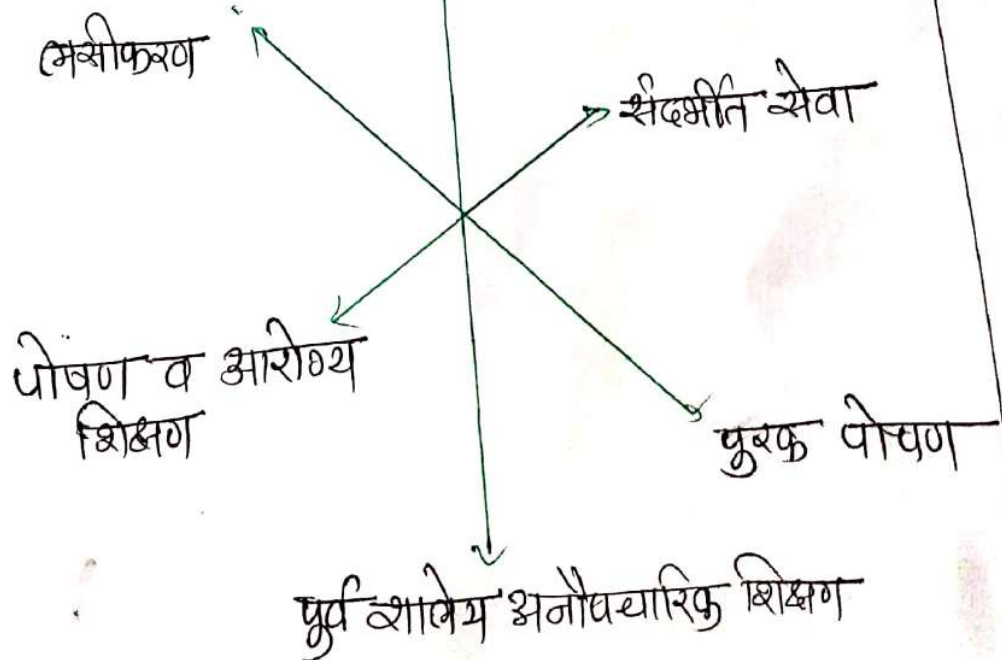 लसीकरण
संदर्भीत सेवा
पोषण व आरोग्य
शिक्षण
पुरक पोषण
पुर्व शालेय अनौपचारिक शिक्षण